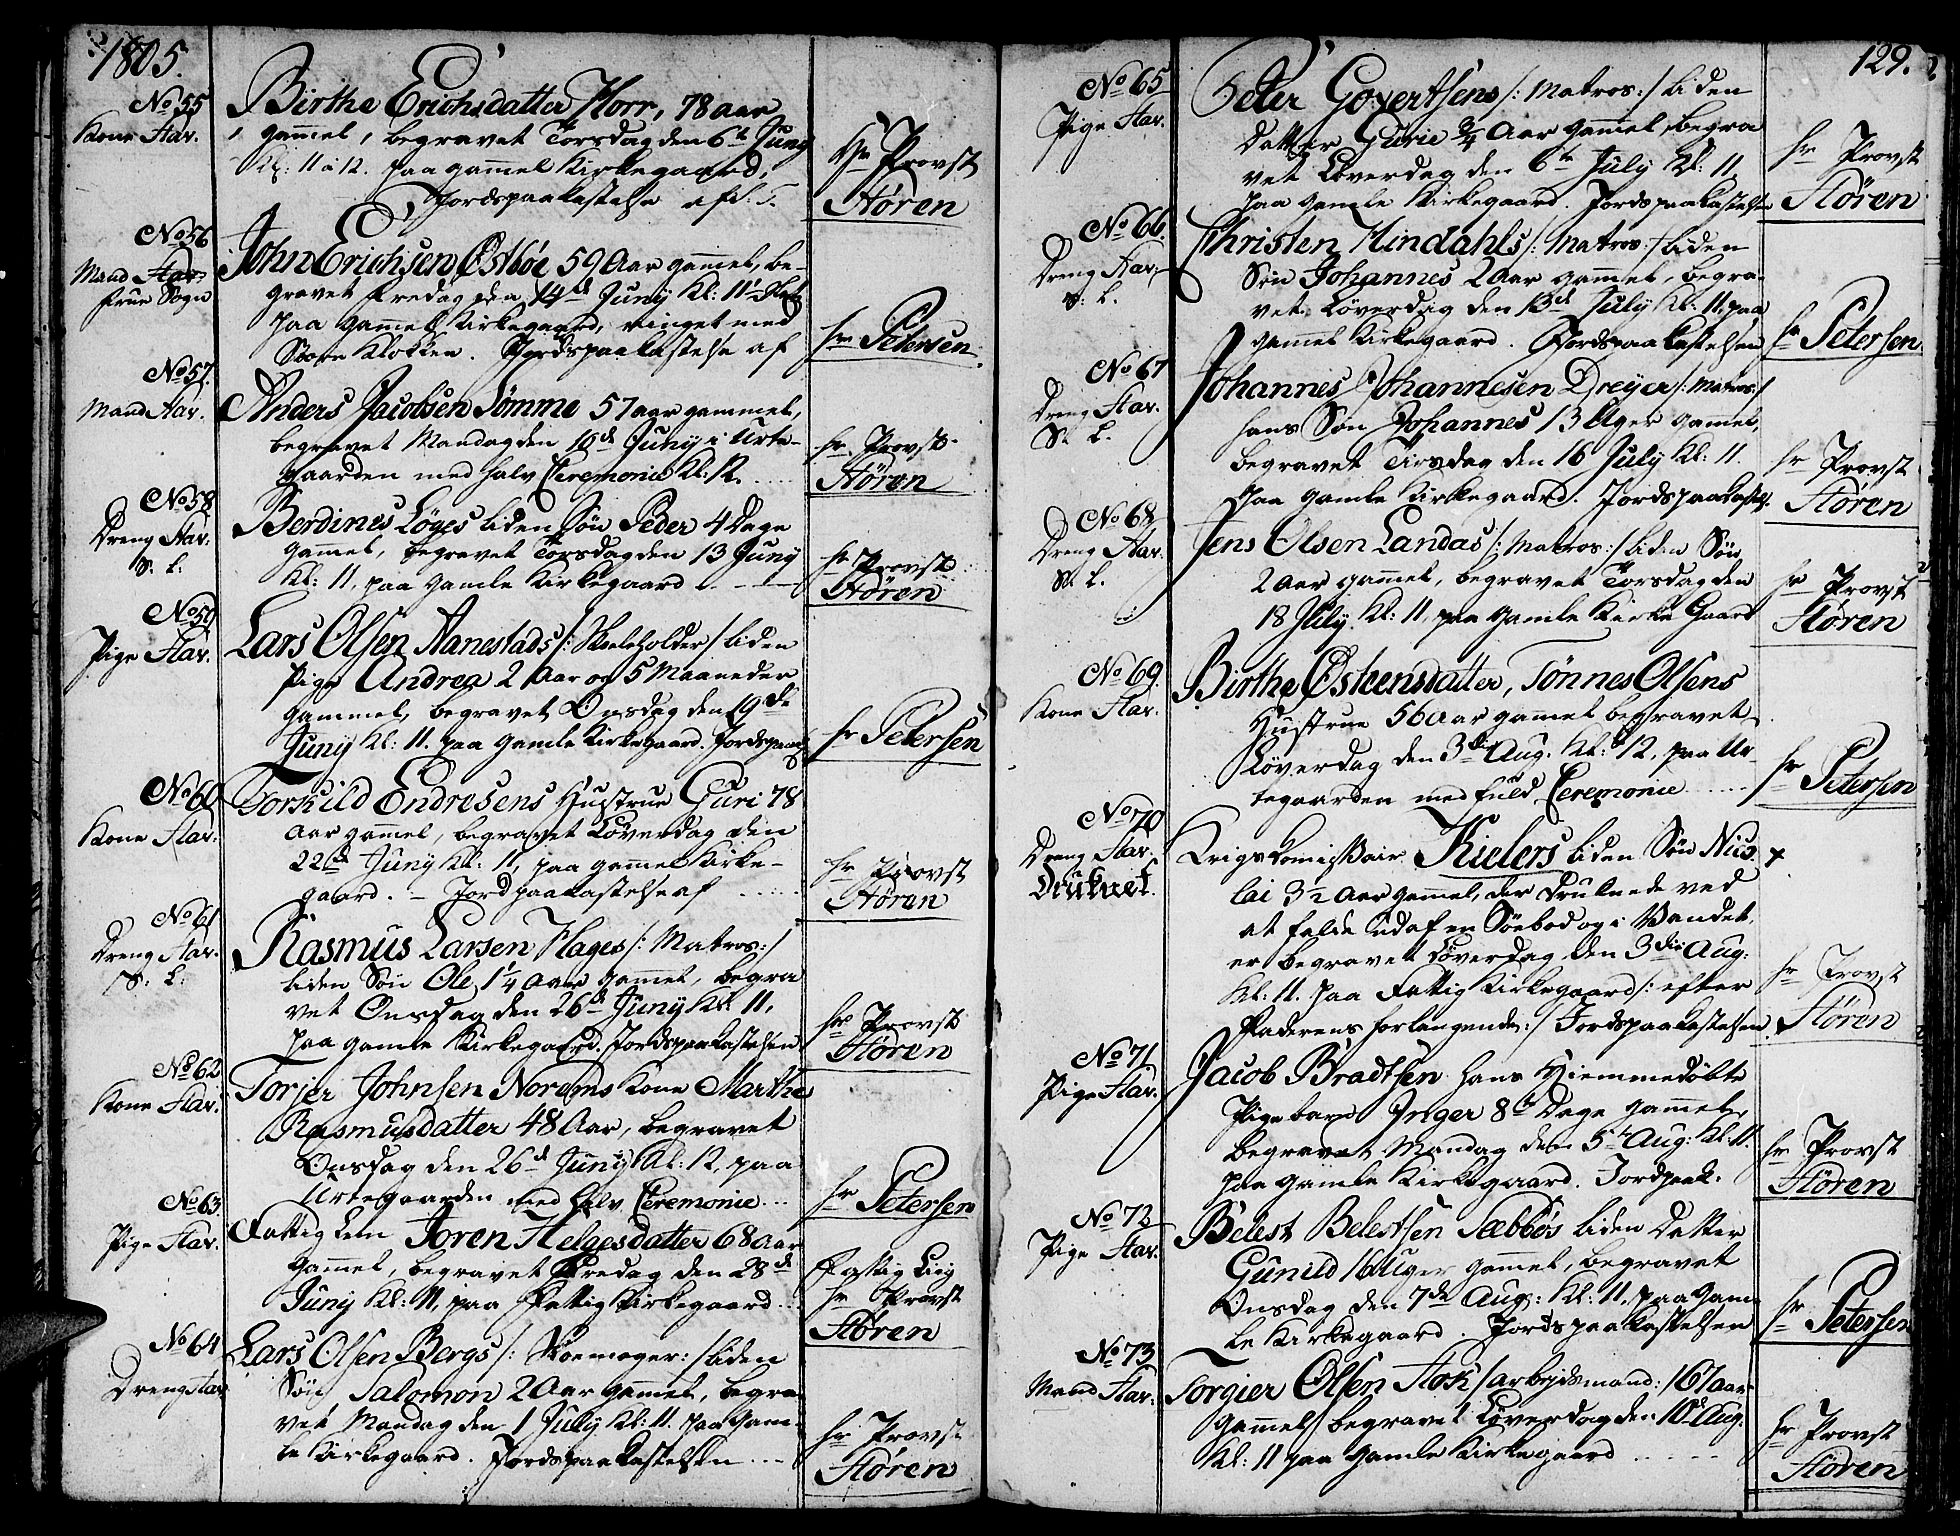 1805.
No 55
Kone Stav.
Birthe Erichsdatter Horr, 78 aar
gamel, begravet Torsdag den 6te Juny
Kl: 11 a 12. paa gamel Kirkegaard,
Jordspaakastelse af d. S.
Hr Provst
Støren
No 56
Mand Stav.
frue Sogn
John Erichsen Østbøe 59 Aar gamel, be-
gravet Fredag den 14de Juny Kl: 11 1/2 Slet
paa gamel Kirkegaard, ringet med
Store Klokken. Jordspaakastelse af
hr Petersen
No 57.
Mand Stav.
Anders Jacobsen Sømme 57 aar gammel,
begravet Mandag den 10de Juny i Urte-
gaarden med halv Ceremonie Kl: 12.
hr Provst
Støren
No 58
Dreng Stav:
S: L:
Berdines Løges liden Søn Peder 4 Dage
gamel, begravet Torsdag den 13 Juny
Kl: 11, paa gamle Kirkegaard.
hr Provst
Støren
No 59
Pige Stav.
Lars Olsen Aanestads /: Skoleholder / liden
Pige Andrea 2 Aar og 5 Maaneder
gammel, begravet Onsdag den 19de
Juny Kl: 11. paa gamle Kirkegaard. Jordspaak
hr Petersen
No 60
Kone Stav:
Torkild Endresens Hustrue Guri 78
Aar gamel, begravet Løverdag den
22de Juny Kl: 11, paa gamel Kirke-
gaard. – Jordpaakastelse af
hr Provst
Støren
No 61
Dreng Stav.
S: L:
Rasmus Larsen Hages /: Matros: /
liden Søn Ole 1 1/4 Aar gamel, begra
vet Onsdag den 26de Juny Kl: 11,
paa gamle Kirkegaard. Jordspaakastelsen
hr Provst
Støren
No 62
Kone Stav.
Torjer Johnsen Norems Kone Marthe
Rasmusdatter 48 Aar, begravet
Onsdag den 26de Juny Kl: 12, paa
Urtegaarden med halv Ceremonie
hr Petersen
No 63.
Pige Stav.
Fattig Lem Joren Helgesdatter 68 Aar
gamel, begravet Fredag den 28de
Juny Kl: 11, paa Fattig Kirkegaard.
Fattig Liig
hr Provst
Støren
No 64
Dreng Stav
Lars Olsen Bergs /: Skoemager: / liden
Søn Salomon 2 Aar gamel, begra-
vet Mandag den 1 July Kl: 11. paa gam-
le Kirkegaard. Jordspaakastelsen
hr Provst
Støren
129.
No 65
Pige Stav.
Peter Goyertsens /: Matros: / liden
Datter Gurie 3/4 Aar gamel, begra
vet Løverdag den 6te July Kl: 11,
paa gamle Kirkegaard. Jordspaakastelsen
hr Provst
Støren
No 66.
Dreng Stav.
S: L.
Christen Hindahls /: Matros: / liden
Søn Johannes 2 Aar gamel, begra-
vet Løverdag den 13de July Kl: 11. paa
gamel Kirkegaard. Jordspaakastelsen
hr Petersen
No 67
Dreng Stav.
S: L.
Johannes Johannesen Dreyer /: Matros: /
hans Søn Johannes 13 Uger gamel,
begravet Tirsdag den 16 July Kl: 11.
paa gamle Kirkegaard. Jordspaakastel.
hr Provst
Støren
No 68.
Dreng Stav.
S: L.
Jens Olsen Landas /: Matros: / liden Søn
2 Aar gamel, begravet Torsdag den
18 July Kl: 11, paa gamle Kirke Gaard
hr Provst
Støren
No 69.
Kone Stav.
Birthe Østensdatter, Tønnes Olsens
Hustrue 56 Aar gamel begravet
Løverdag den 3die Aug. Kl: 12, paa Ur-
tegaarden med fuld Ceremonie
hr Petersen
No 70
Dreng Stav.
Druknet.
Krigs Commissair Kielers liden Søn Nico
lai 3 1/2 Aar gamel, der druknede ved
at falde ud af en Søebod og i Vandet,
er begravet Løverdag den 3die Aug:
Kl: 11. paa Fattig Kirkegaard /: efter
Faderens forlangende: / Jordspaakastelsen
hr Provst
Støren
No 71
Pige Stav.
Jacob Bradtsen hans Hiemmedøbte
Pigebarn Inger 8te Dage gamel,
begravet Mandag den 5te Aug: Kl: 11.
paa gamle Kirkegaard. Jordpaak.
hr Provst
Støren
No 72
Pige Stav.
Belest Belestsen Sæbbøs liden Datter
Gunild 16 Uger gamel, begravet
Onsdag den 7de Aug: Kl: 11, paa Gam-
le Kirkegaard. Jordspaakastelsen
hr Petersen
No 73
Mand Stav:
Torgier Olsen Stok / arbejdsmand: / 61 aar
gamel / begravet Løverdag den 10de Aug:
Kl: 11 paa gamle Kirkegaard
hr Provst
Støren